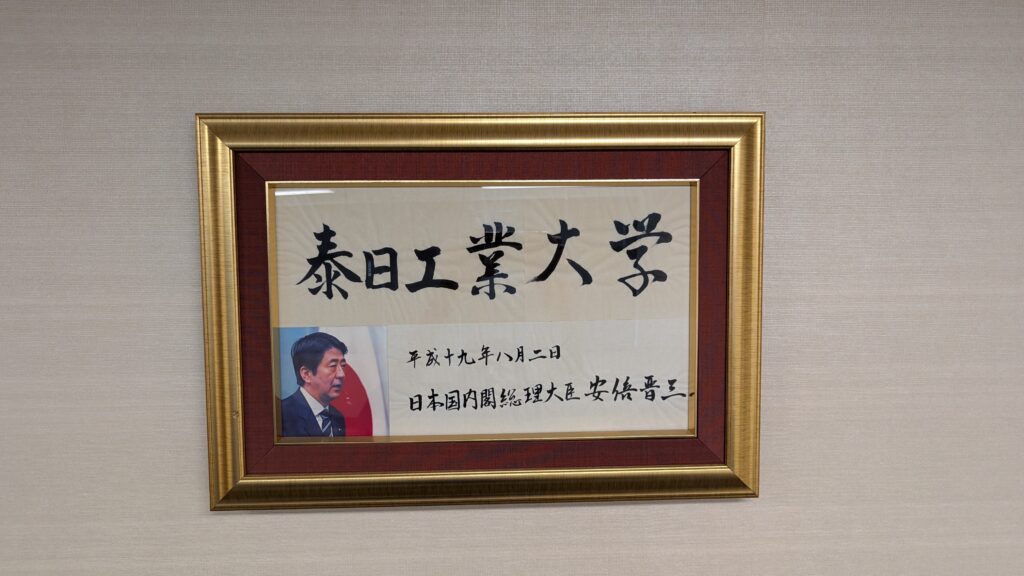 泰日工業大学
平成十九年八月二日
日本国内閣総理大臣 安倍晋三